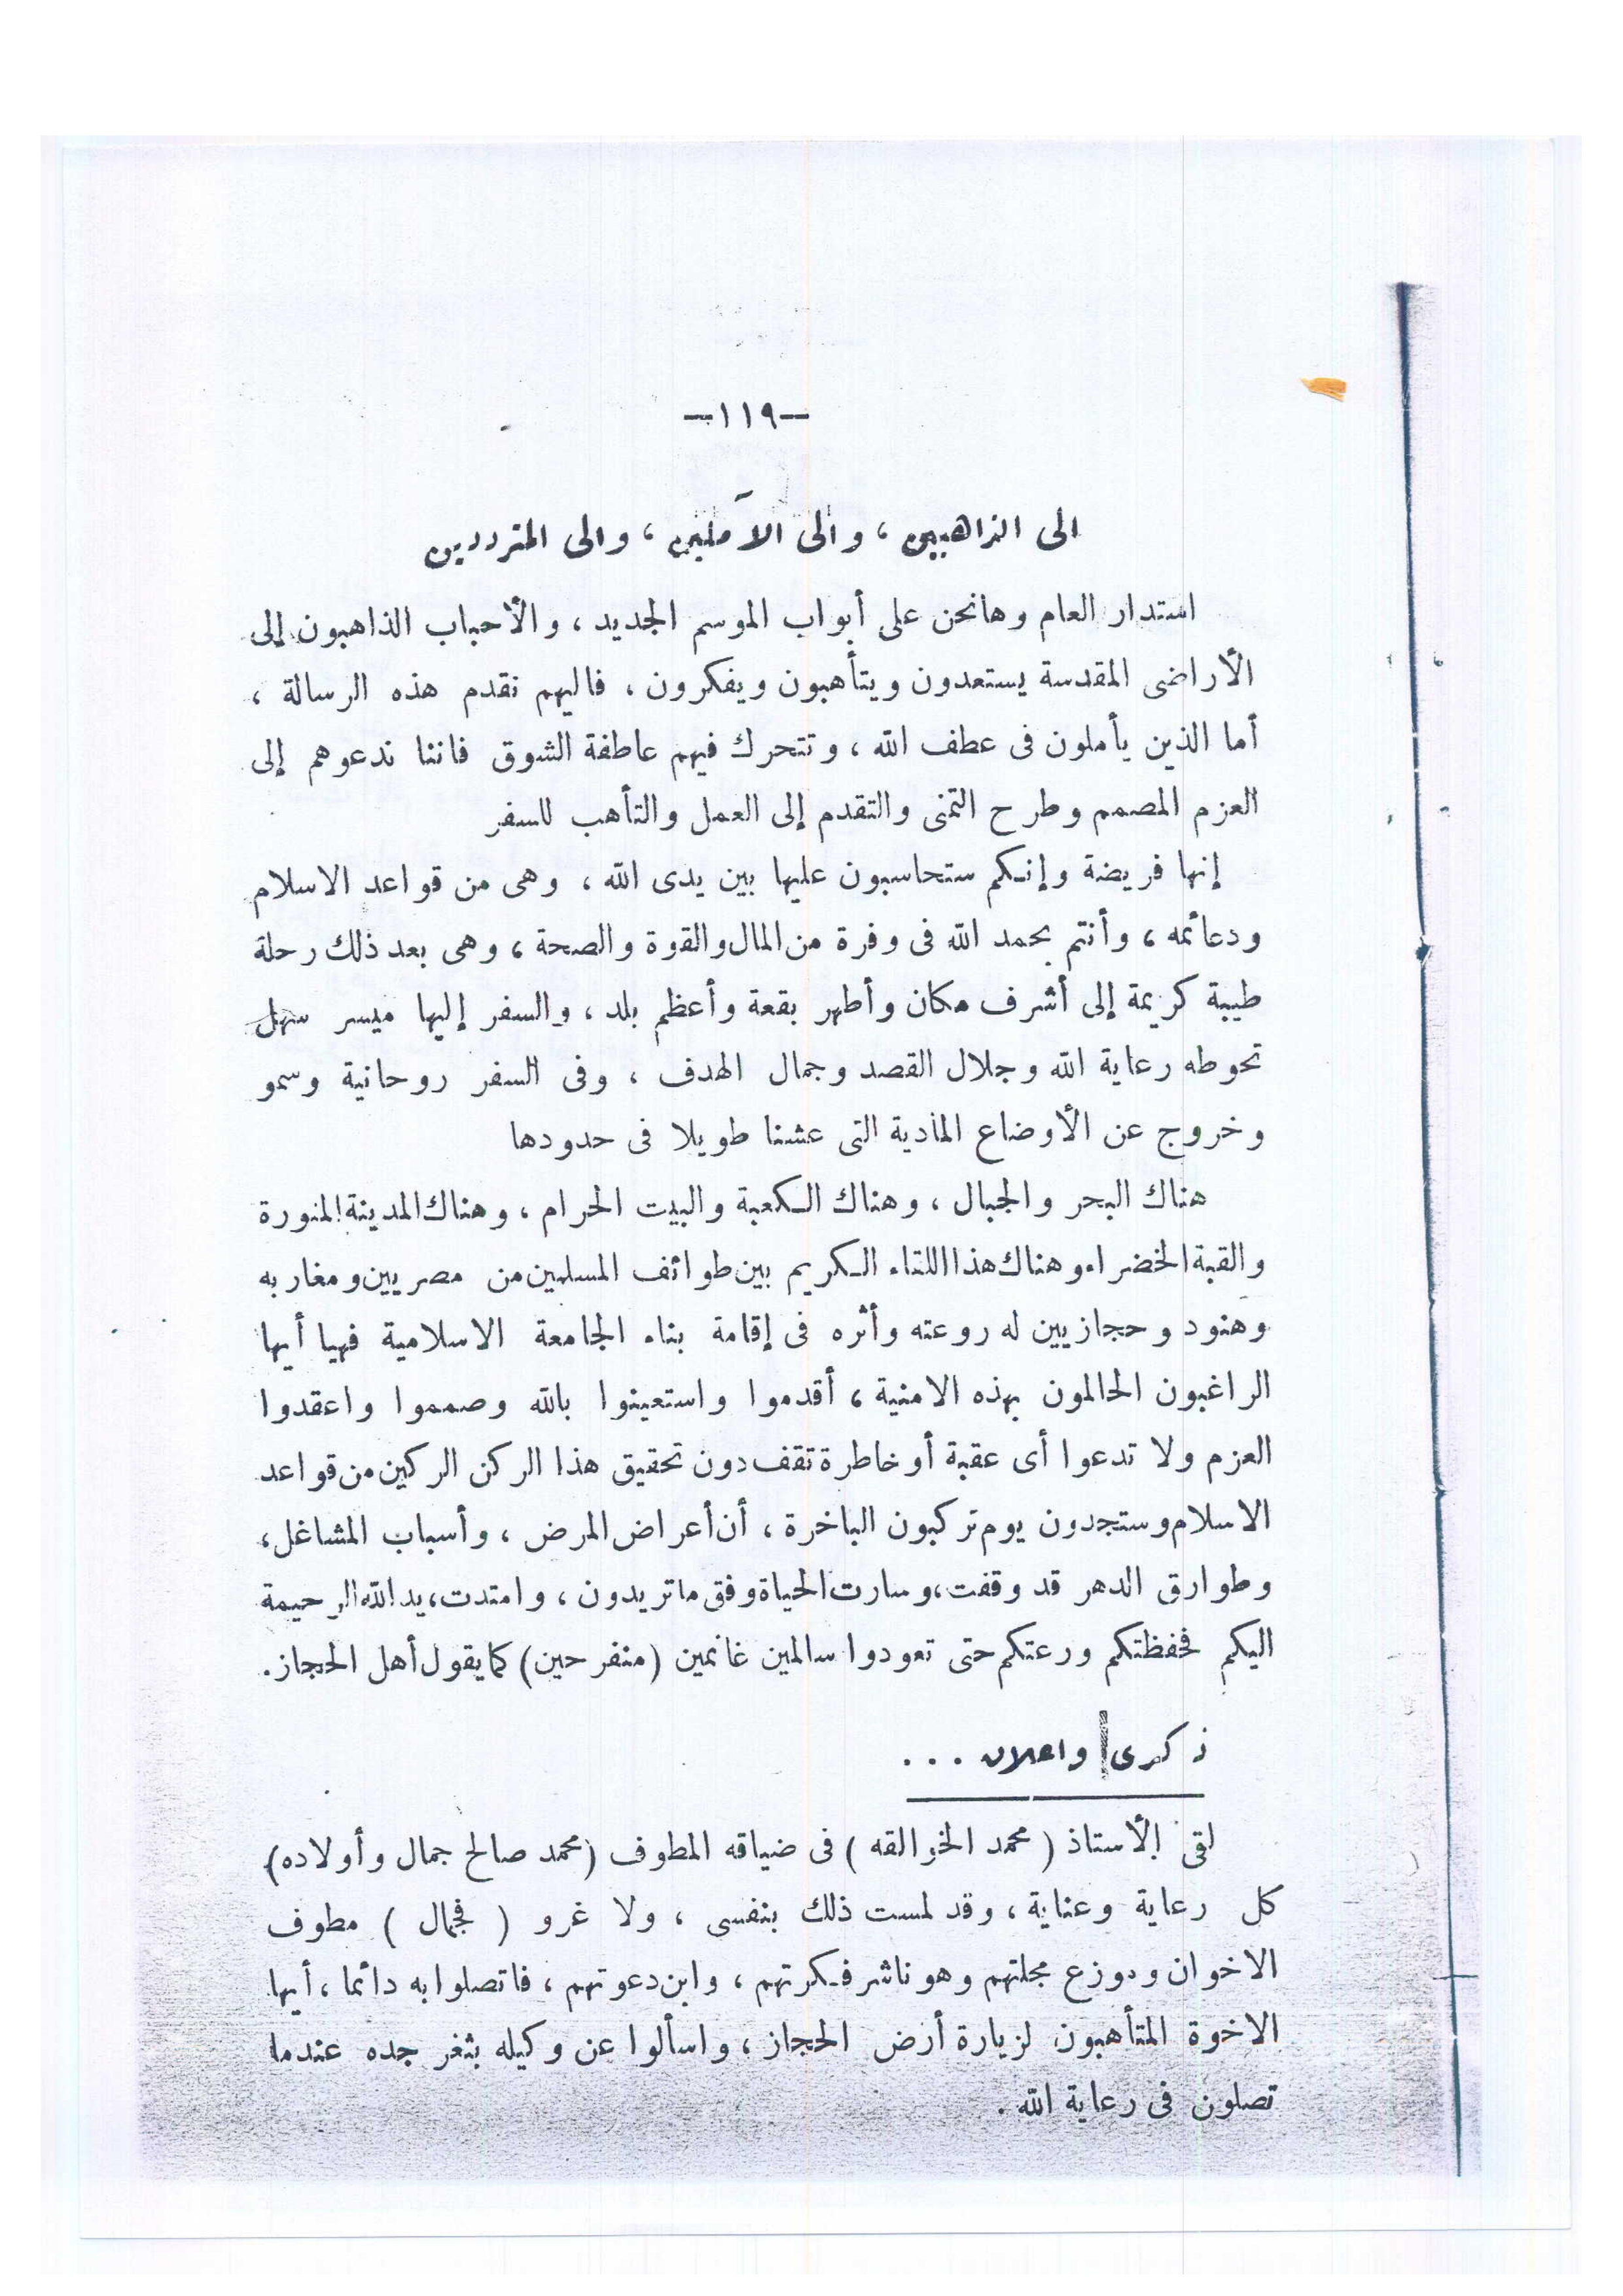 —١١٩—
الى الذاهبين ، والى الآملين ، والى المترددين
استدار العام وهانحن على أبواب الموسم الجديد ، والأحباب الذاهبون إلى
الأراضى المقدسة يستعدون ويتأهبون ويفكرون ، فاليهم نقدم هذه الرسالة ،
أما الذين يأملون فى عطف الله ، وتتحرك فيهم عاطفة الشوق فاننا ندعوهم إلى
العزم المصمم وطرح التمنى والتقدم إلى العمل والتأهب للسفر
إنها فريضة وإنكم ستحاسبون عليها بين يدى الله ، وهى من قواعد الاسلام
ودعائمه ، وأنتم بحمد الله فى وفرة من المال والقوة والصحة ، وهى بعد ذلك رحلة
طيبة كريمة إلى أشرف مكان وأطهر بقعة وأعظم بلد ، والسفر إليها ميسر سهل
تحوطه رعاية الله وجلال القصد وجمال الهدف ، وفى السفر روحانية وسمو
وخروج عن الأوضاع المادية التى عشنا طويلا فى حدودها
هناك البحر والجبال ، وهناك الكعبة والبيت الحرام ، وهناك المدينة المنورة
والقبة الخضراء وهناك هذا اللقاء الكريم بين طوائف المسلمين من مصريين ومغاربه
وهنود وحجازيين له روعته وأثره فى إقامة بناء الجامعة الاسلامية فهيا أيها
الراغبون الحالمون بهذه الامنية ، أقدموا واستعينوا بالله وصمموا واعقدوا
العزم ولا تدعوا أى عقبة أو خاطرة تقف دون تحقيق هذا الركن الركين من قواعد
الاسلام وستجدون يوم تركبون الباخرة ، أن أعراض المرض ، وأسباب المشاغل ،
وطوارق الدهر قد وقفت ، وسارت الحياة وفق ما تريدون ، وامتدت ، يد الله الرحيمة
اليكم فحفظتكم ورعتكم حتى تعودوا سالمين غانمين (منفرحين) كما يقول أهل الحجاز .
ذكرى واعلان . . .
لقى الأستاذ ( محمد الخوالقه ) فى ضيافه المطوف (محمد صالح جمال وأولاده)
كل رعاية وعناية ، وقد لمست ذلك بنفسى ، ولا غرو ( فجمال ) مطوف
الاخوان وموزع مجلتهم وهو ناشر فكرتهم ، وابن دعوتهم ، فاتصلوا به دائما ، أيها
الاخوة المتأهبون لزيارة أرض الحجاز ، واسألوا عن وكيله بثغر جده عندما
تصلون فى رعاية الله .